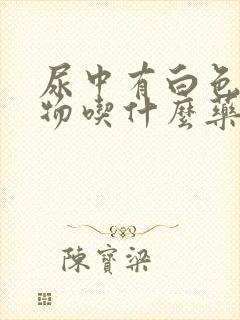 尿中有白色
物喫什麼藥
陳寶梁